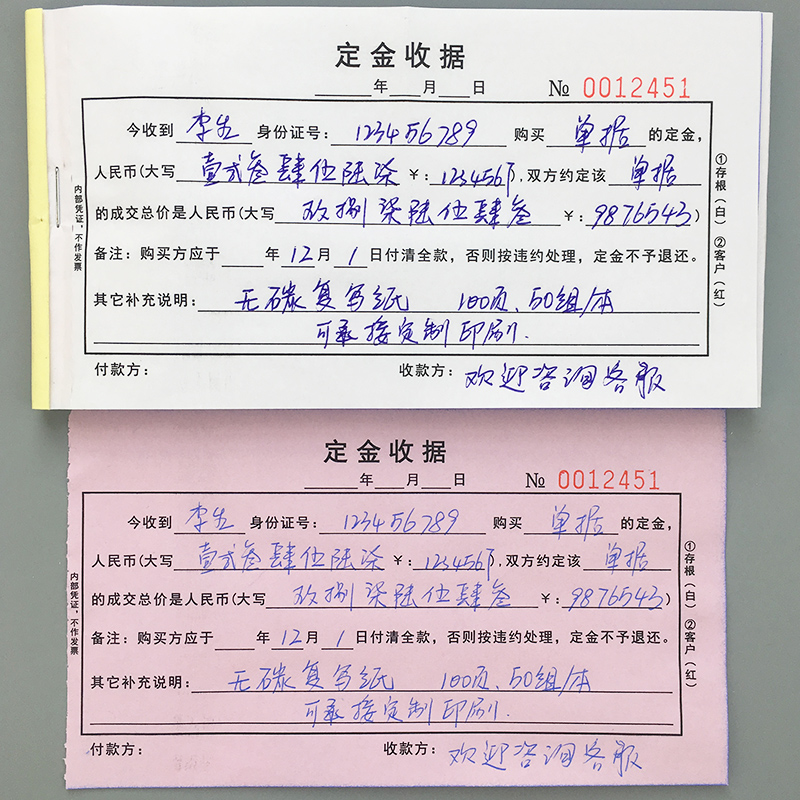 定金收据
年 月 日 № 0012451
今收到 李生 身份证号: 123456789 购买 单据 的定金,
人民币(大写 壹贰叁肆伍陆柒 ¥: 1234567, 双方约定该 单据
的成交总价是人民币(大写 玖捌柒陆伍肆叁 ¥: 9876543)
备注: 购买方应于 年 12 月 1 日付清全款, 否则按违约处理, 定金不予退还。
其它补充说明: 无碳复写纸 100页、50组/本
可承接定制印刷.
付款方: 收款方: 欢迎咨询客服
内部凭证,不作发票
①存根(白) ②客户(红)
定金收据
年 月 日 № 0012451
今收到 李生 身份证号: 123456789 购买 单据 的定金,
人民币(大写 壹贰叁肆伍陆柒 ¥: 1234567, 双方约定该 单据
的成交总价是人民币(大写 玖捌柒陆伍肆叁 ¥: 9876543)
备注: 购买方应于 年 12 月 1 日付清全款, 否则按违约处理, 定金不予退还。
其它补充说明: 无碳复写纸 100页、50组/本
可承接定制印刷.
付款方: 收款方: 欢迎咨询客服
内部凭证,不作发票
①存根(白) ②客户(红)